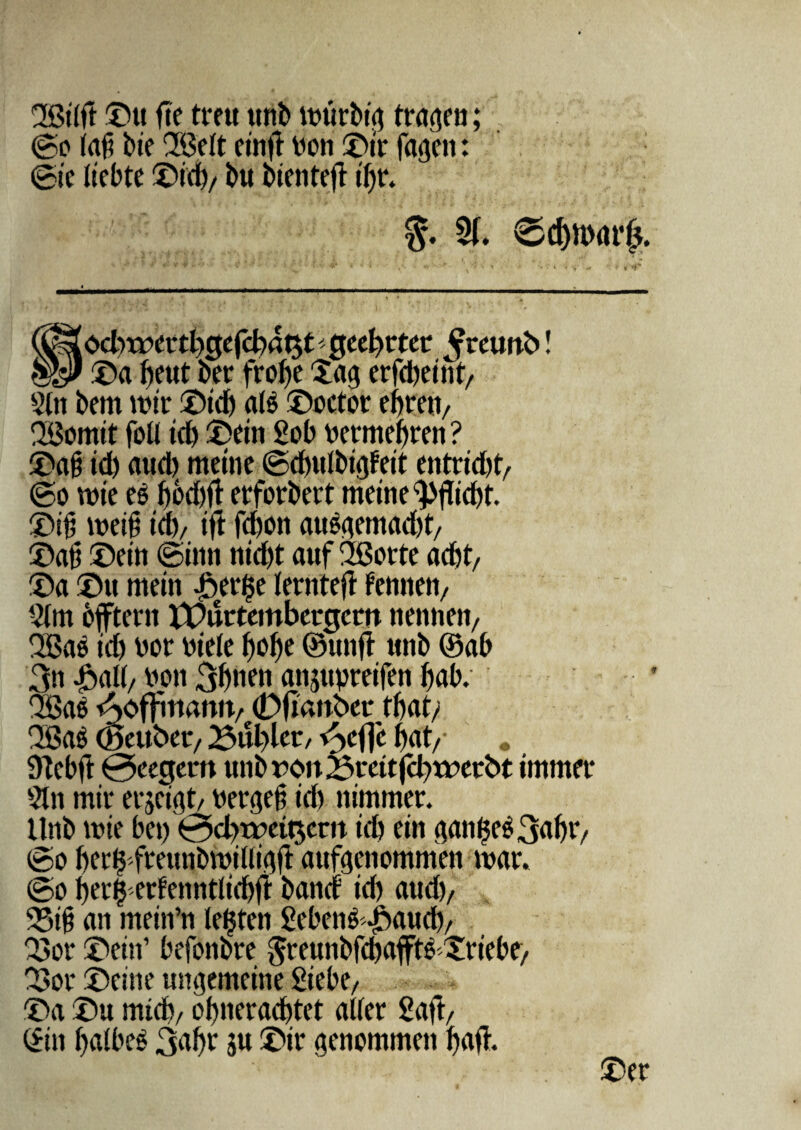 Wilst Du sie treu und würdig tragen;
So laß die Welt einst von Dir sagen:
Sie liebte Dich, du dientest ihr.
F. A. Schwartz.
Hochwerthgeschätzt-geehrter Freund!
Da heut der frohe Tag erscheint,
An dem wir Dich als Doctor ehren,
Womit soll ich Dein Lob vermehren?
Daß ich auch meine Schuldigkeit entricht,
So wie es höchst erfordert meine Pflicht.
Diß weiß ich, ist schon ausgemacht,
Daß Dein Sinn nicht auf Worte acht,
Da Du mein Hertze lerntest kennen,
Am öfftern Würtembergern nennen,
Was ich vor viele hohe Gunst und Gab
In Hall, von Ihnen anzupreisen hab.
Was Hoffmann, Osiander that,
Was Geuder, Bühler, Hesse hat,
Nebst Seegern und von Breitschwerdt immer
An mir erzeigt, vergeß ich nimmer.
Und wie bey Schweitzern ich ein gantzes Jahr,
So hertz-freundwilligst aufgenommen war.
So hertz-erkenntlichst danck ich auch,
Biß an mein'n letzten Lebens-Hauch,
Vor Dein' besondre Freundschaffts-Triebe,
Vor Deine ungemeine Liebe,
Da Du mich, ohnerachtet aller Last,
Ein halbes Jahr zu Dir genommen hast.
Der